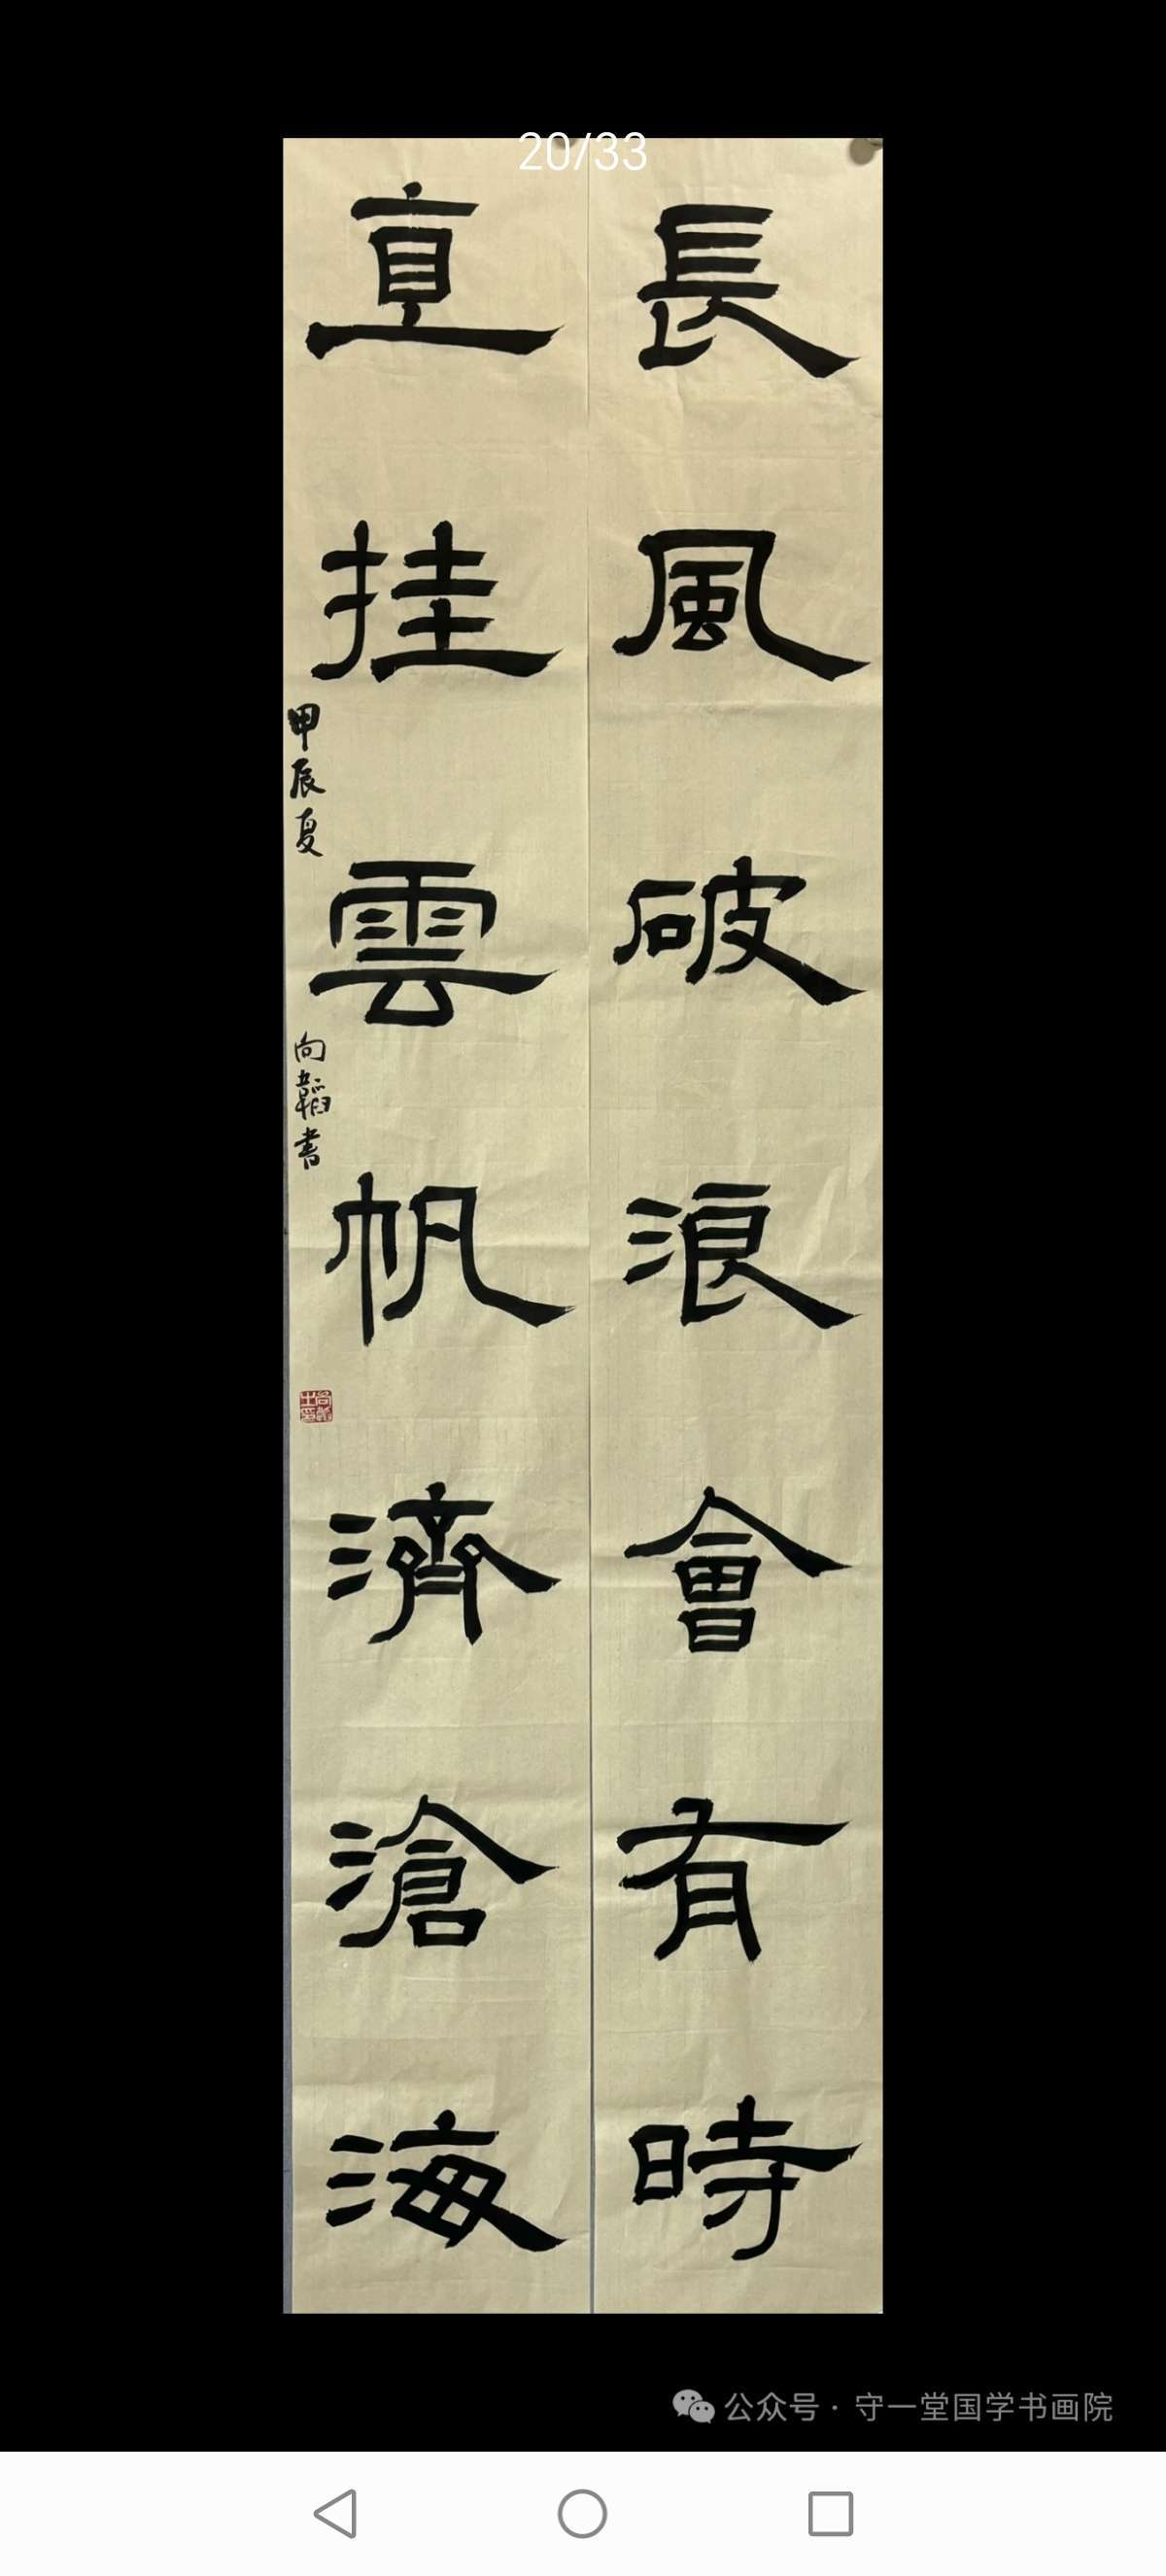 20/33
長風破浪會有時
直挂雲帆濟滄海
甲辰夏
向韜書
公众号 · 守一堂国学书画院